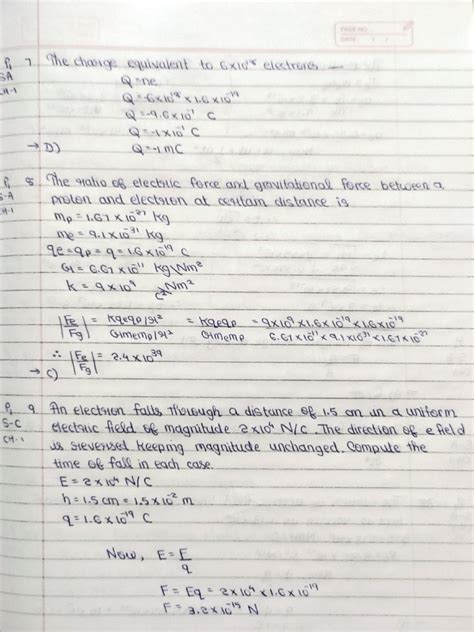 PAGE NO.
DATE
P1 7 The charge equivalent to 6×10¹⁸ electrons -
SA Q=ne
CH-1 Q=-6×10¹⁸×1.6×10⁻¹⁹
Q=-9.6×10⁻¹ C
Q=-1×10⁻¹ C
→ D) Q=-1mC
P1 8 The ratio of electric force and gravitational force between a
S-A proton and electron at certain distance is
CH-1 mp=1.67×10⁻²⁷ kg
me=9.1×10⁻³¹ kg
qe=qp=q=1.6×10⁻¹⁹ C
G=6.67×10⁻¹¹ kg Nm²
K=9×10⁹ Nm²/C²
|Fe/Fg| = Kqeqp/r² / Gmemp/r² = Kqeqp / Gmemp = 9×10⁹×1.6×10⁻¹⁹×1.6×10⁻¹⁹ / 6.67×10⁻¹¹×9.1×10⁻³¹×1.67×10⁻²⁷
∴ |Fe/Fg| = 2.4×10³⁹
→ C)
P1 9 An electron falls through a distance of 1.5 cm in a uniform
S-C electric field of magnitude 2×10⁴ N/C. The direction of e field
CH-1 is reversed keeping magnitude unchanged. Compute the
time of fall in each case.
E=2×10⁴ N/C
h=1.5cm=1.5×10⁻² m
q=1.6×10⁻¹⁹ C
Now, E=F/q
F=Eq=2×10⁴×1.6×10⁻¹⁹
F=3.2×10⁻¹⁵ N